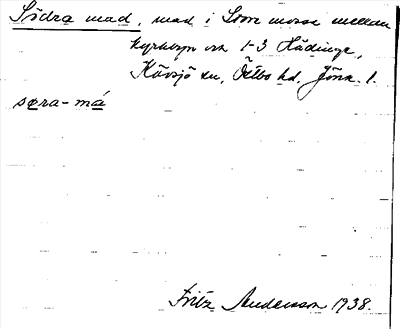 Södra mad, mad i Store mosse mellan
kyrkbyn och 1-3 Hädinge,
Kävsjö sn, Östbo hd, Jönk. l.
søra-má
Fritz Andersson 1938.